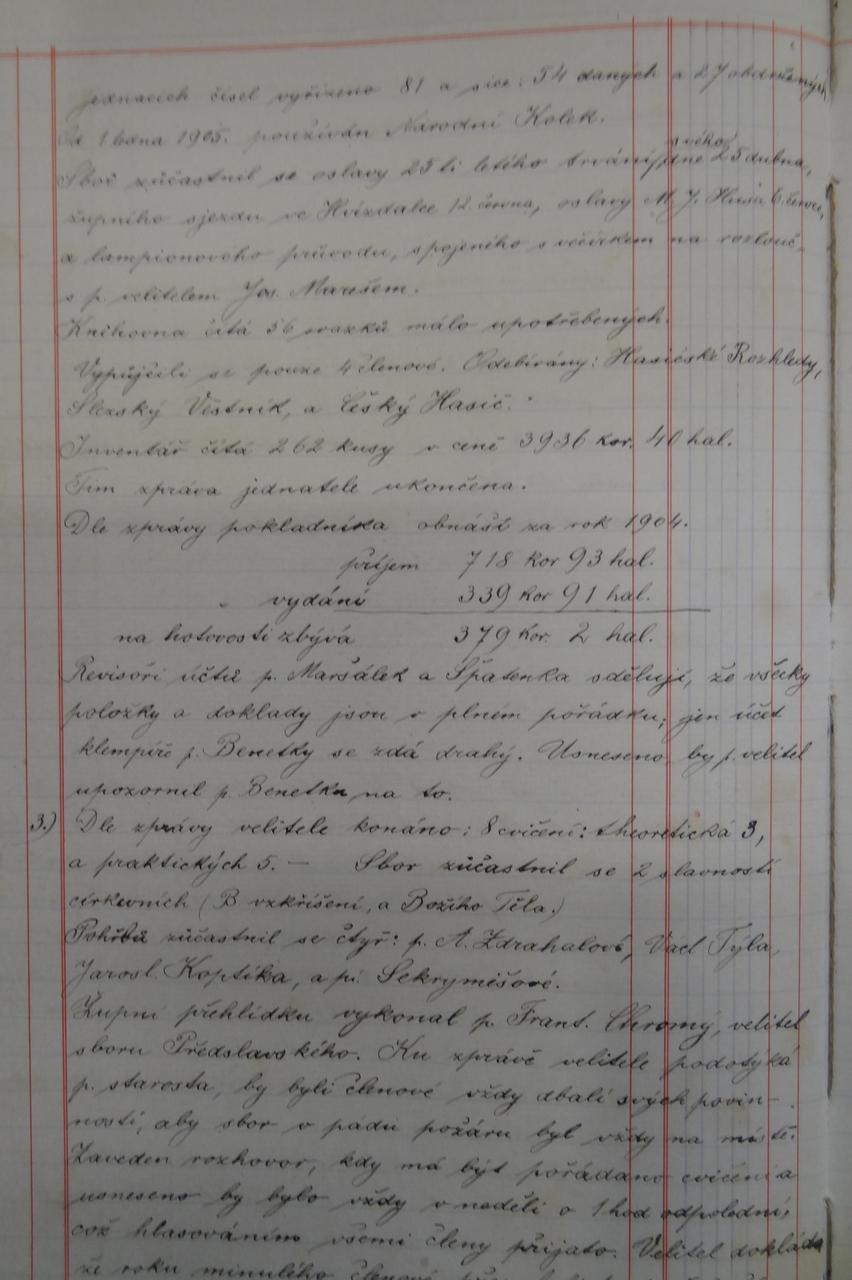 jednacích čísel vyřízeno 81 a sice: 54 daných a 27 obdržených
Od 1 ledna 1905. používán Národní Kolek.
svého
Sbor zúčastnil se oslavy 25ti letého trvání, dne 25 dubna,
župního sjezdu ve Hvízdalce 12. června, oslavy M. J. Husa 6 července,
a lampionového průvodu, spojeného s večírkem na rozlouč-
s p. velitelem Jos. Marešem.
Knihovna čítá 56 svazků málo upotřebených.
Vypůjčili se pouze 4 členové. Odebírány: Hasičské Rozhledy,
Slezský Věstník, a Český Hasič.
Inventář čítá 262 kusy v ceně 3936 kor. 40 hal.
Tím zpráva jednatele ukončena.
Dle zprávy pokladníka obnáší za rok 1904.
příjem 718 kor 93 hal.
„ vydání 339 kor 91 hal.
na hotovosti zbývá 379 kor. 2 hal.
Revisoři účtů p. Maršálek a Špatenka sdělují, že všecky
položky a doklady jsou v plném pořádku, jen účet
klempíře p. Benetky se zdá drahý. Usneseno by p. velitel
upozornil p. Benetku na to.
3.) Dle zprávy velitele konáno: 8 cvičení: theoretická 3,
a praktických 5. — Sbor zúčastnil se 2 slavností
církevních (B. vzkříšení, a Božího Těla.)
Pohřbů zúčastnil se čtyř: p. A. Zdrahalové, Václ Týla,
Jarosl. Koptíka, a pí. Sekrymišové.
Župní přehlídku vykonal p. Frant. Chromý, velitel
sboru Předslavského. Ku zprávě velitele podotýká
p. starosta, by byli členové vždy dbalí svých povin-
ností, aby sbor v pádu požáru byl vždy na místě.
Zaveden rozhovor, kdy má být pořádano cvičení a
usneseno by bylo vždy v neděli o 1 hod odpolední,
což hlasováním všemi členy přijato. Velitel dokládá
že roku minulého členové